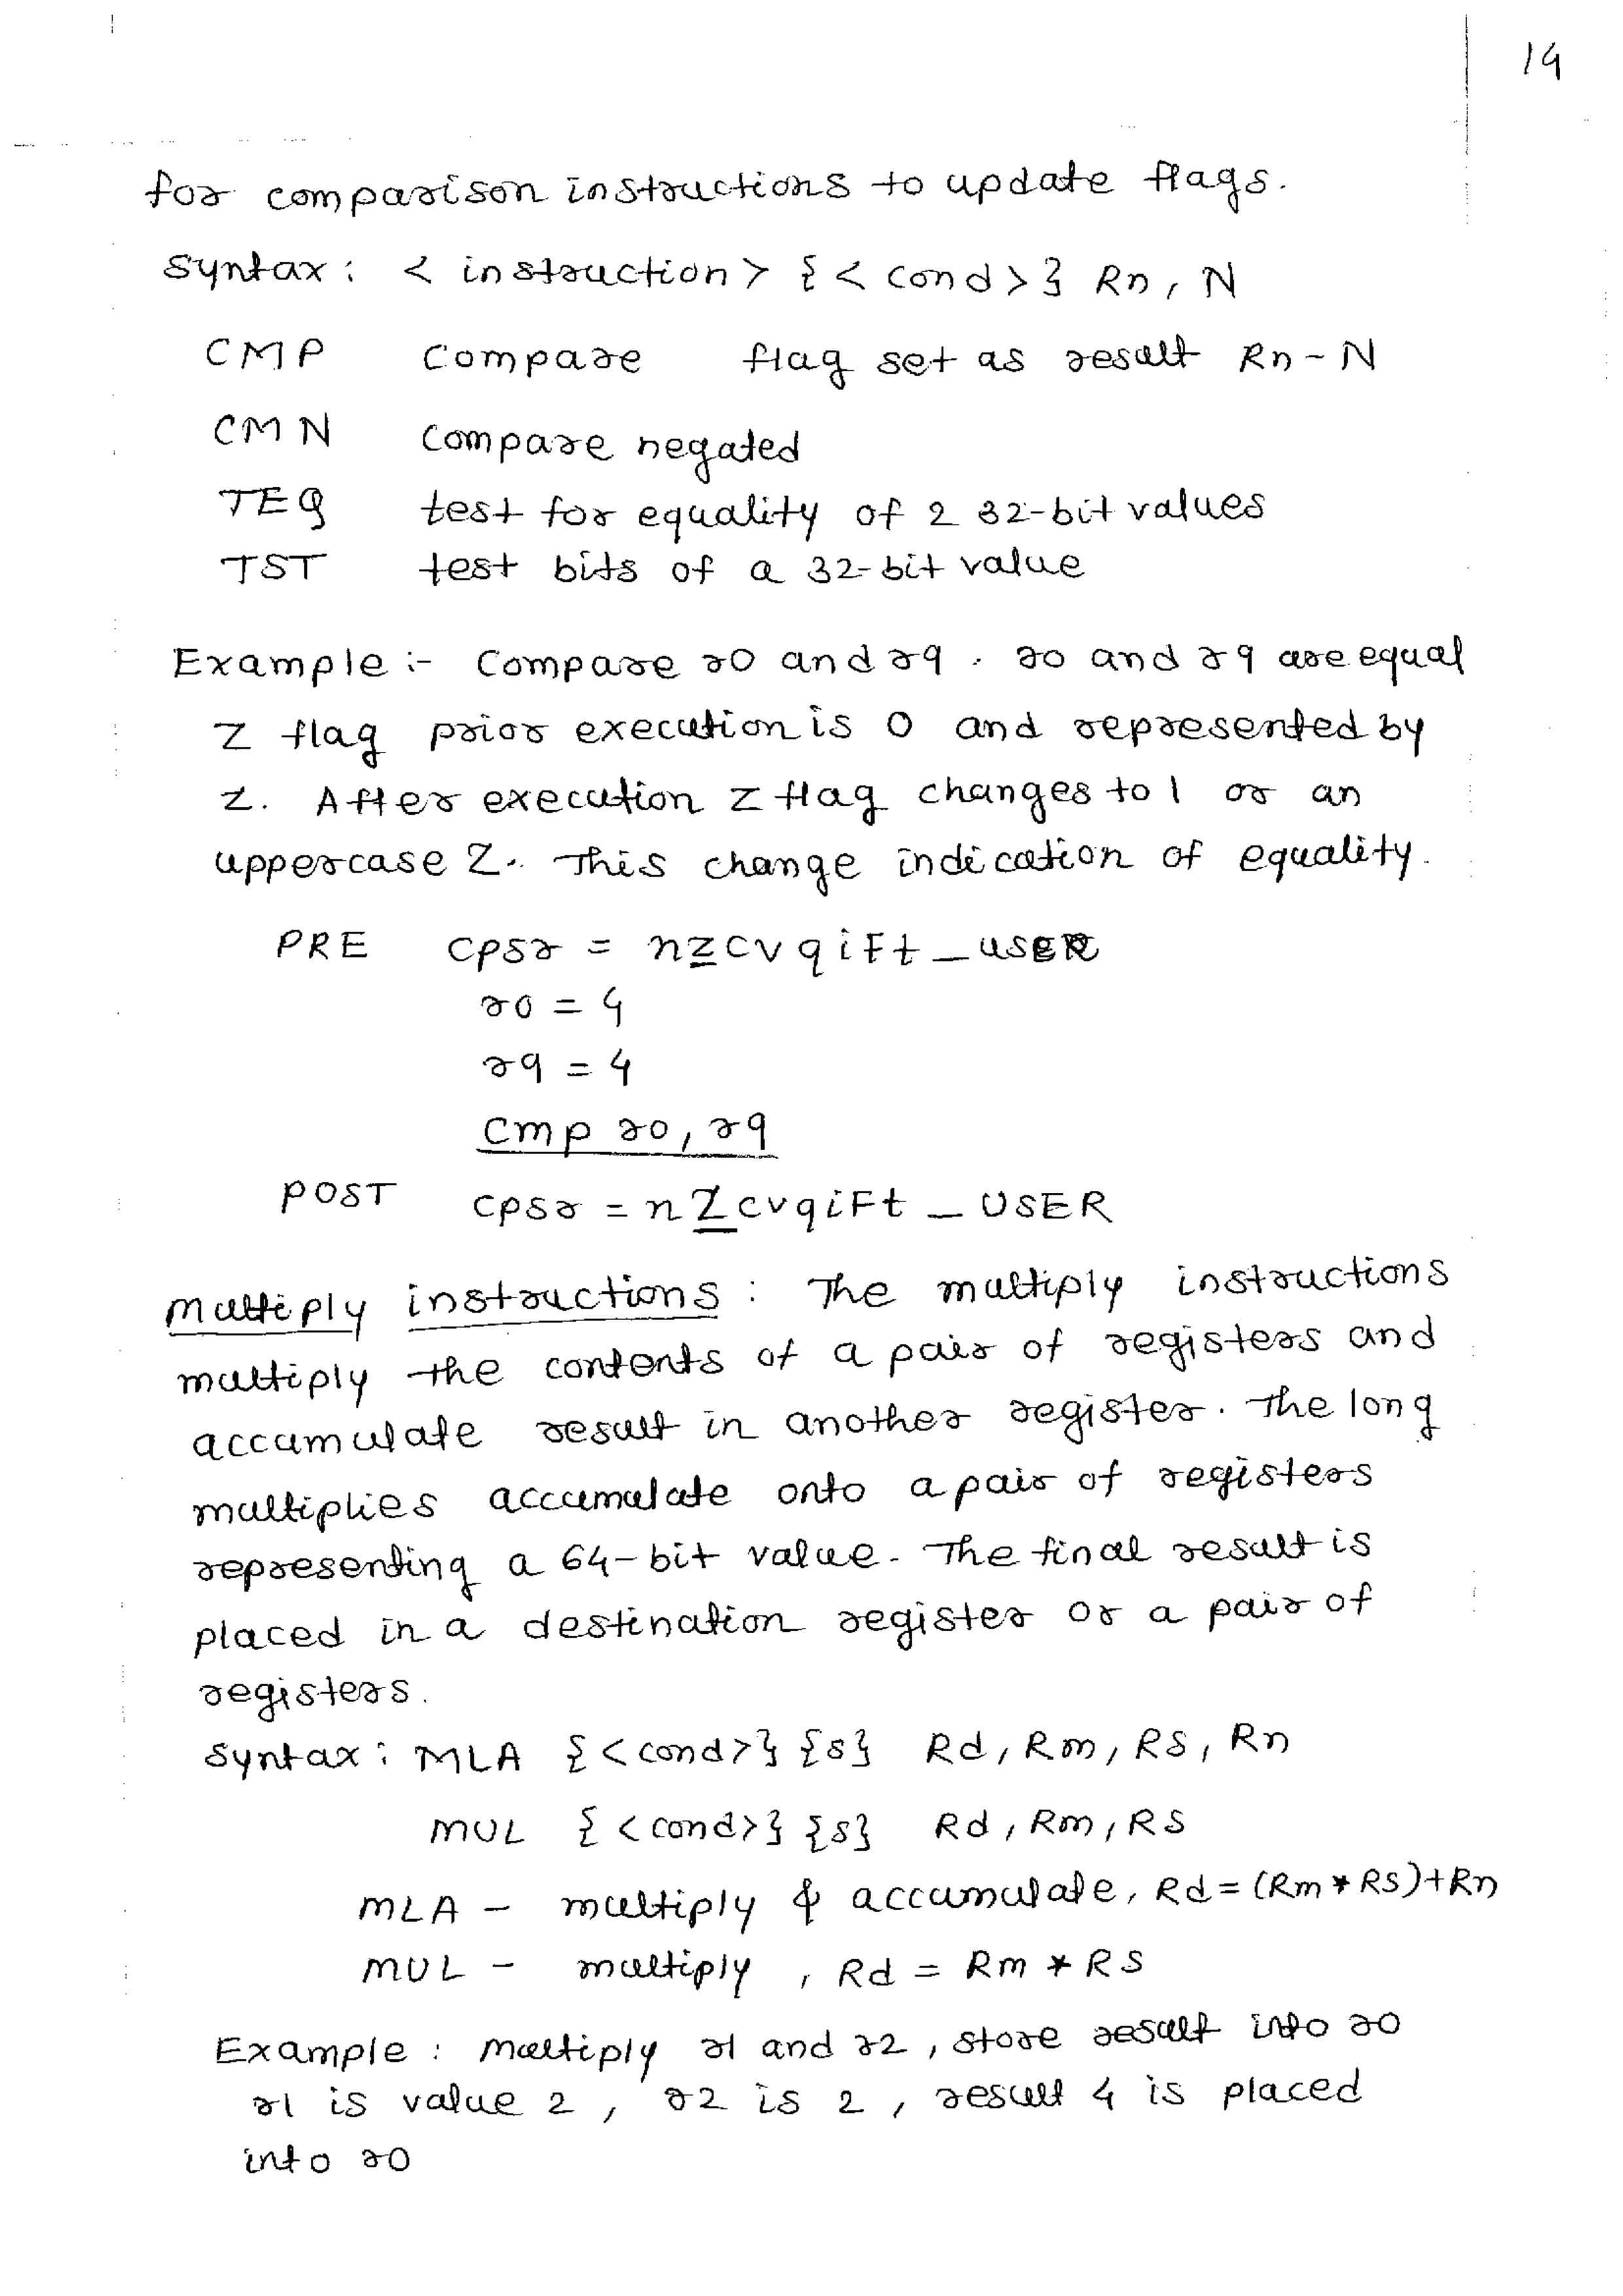 14
for comparison instructions to update flags.
Syntax: <instruction> {<cond>} Rn, N
CMP Compare flag set as result Rn-N
CMN Compare negated
TEQ test for equality of 2 32-bit values
TST test bits of a 32-bit value
Example:- Compare r0 and r9. r0 and r9 are equal
Z flag prior execution is 0 and represented by
z. After execution Z flag changes to 1 or an
uppercase Z. This change indication of equality.
PRE cpsr = nzcvqiFt_USER
r0 = 4
r9 = 4
Cmp r0, r9
POST cpsr = nZcvqiFt_USER
Multiply instructions: The multiply instructions
multiply the contents of a pair of registers and
accumulate result in another register. The long
multiplies accumulate onto a pair of registers
representing a 64-bit value. The final result is
placed in a destination register or a pair of
registers.
Syntax: MLA {<cond>}{s} Rd, Rm, RS, Rn
MUL {<cond>}{s} Rd, Rm, RS
MLA - multiply & accumulate, Rd=(Rm*RS)+Rn
MUL - multiply, Rd = Rm * RS
Example: multiply r1 and r2, store result into r0
r1 is value 2, r2 is 2, result 4 is placed
into r0